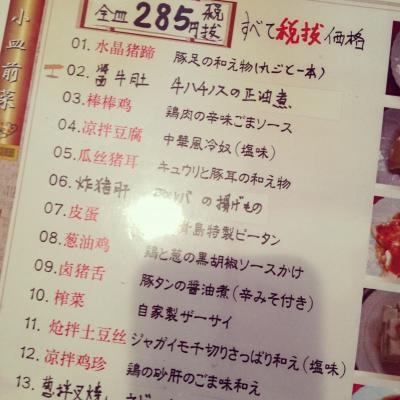 小皿前菜
全皿285円税抜 すべて税抜価格
01. 水晶猪蹄 豚足の和え物(丸ごと一本)
02. 酱牛肚 牛ハチノスの正油煮
03. 棒棒鸡 鶏肉の辛味ごまソース
04. 凉拌豆腐 中華風冷奴(塩味)
05. 瓜丝猪耳 キュウリと豚耳の和え物
06. 炸猪肝 の揚げもの
07. 皮蛋 青島特製ピータン
08. 葱油鸡 鶏と葱の黒胡椒ソースかけ
09. 卤猪舌 豚タンの醤油煮(辛みそ付き)
10. 榨菜 自家製ザーサイ
11. 炝拌土豆丝 ジャガイモ千切りさっぱり和え(塩味)
12. 凉拌鸡珍 鶏の砂肝のごま味和え
13. 葱拌叉烧